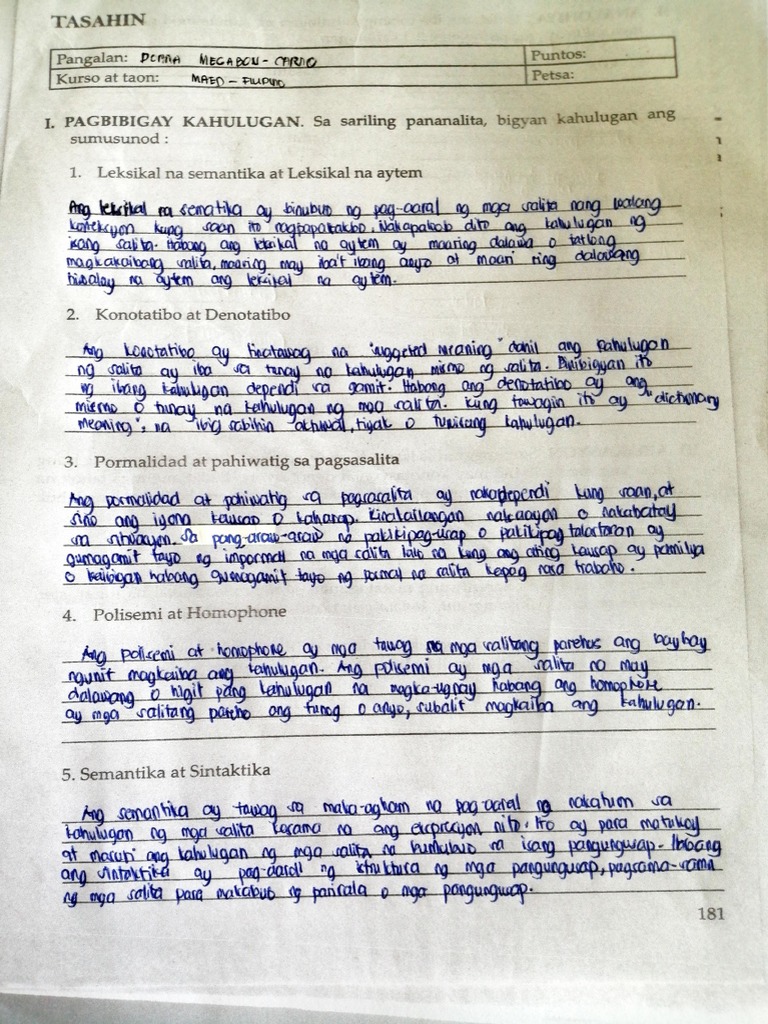 TASAHIN
Pangalan: MEGABON - CARIÑO Puntos:
Kurso at taon: MAED - FILIPINO Petsa:
I. PAGBIBIGAY KAHULUGAN. Sa sariling pananalita, bigyan kahulugan ang
sumusunod :
1. Leksikal na semantika at Leksikal na aytem
Ang leksikal na sematika ay binubuo ng pag-aaral ng mga salita nang walang
konteksyon kung saan ito nagtapatakbo. Nakapaloob dito ang kahulugan ng
isang salita. Habang ang leksikal na aytem ay maaring dalawa o tatlong
magkakaibang salita, maaring may iba't ibang anyo at maari ring dalawang
hiwalay na aytem ang leksikal na aytem.
2. Konotatibo at Denotatibo
Ang konotatibo ay tinatawag na "suggested meaning" dahil ang kahulugan
ng salita ay iba sa tunay na kahulugan mismo ng salita. Binibigyan ito
ng ibang kahulugan dependi sa gamit. Habang ang denotatibo ay ang
mismo o tunay na kahulugan ng mga salita. Kung tawagin ito ay "dictionary
meaning", na ibig sabihin aktuwal, tiyak o tuwirang kahulugan.
3. Pormalidad at pahiwatig sa pagsasalita
Ang pormalidad at pahiwatig sa pagsasalita ay nakadependi kung saan, at
sino ang iyong kausap o kaharap. Kinakailangan nakaayon o nakabatay
sa sitwasyon. Sa pang-araw-araw na pakikipag-usap o pakikipagtalastasan ay
gumagamit tayo ng impormal na mga salita lalo na kung ang ating kausap ay pamilya
o kaibigan habang gumagamit tayo ng pormal na salita kapag nasa trabaho.
4. Polisemi at Homophone
Ang polisemi at homophone ay mga tawag sa mga salitang parehas ang baybay
ngunit magkaiba ang kahulugan. Ang polisemi ay mga salita na may
dalawang o higit pang kahulugan na magka-ugnay habang ang homophone
ay mga salitang pareho ang tunog o anyo, subalit magkaiba ang kahulugan.
5. Semantika at Sintaktika
Ang semantika ay tawag sa maka-agham na pag-aaral ng nakatuon sa
kahulugan ng mga salita kasama na ang ekspresyon nito. Ito ay para matukoy
at masuri ang kahulugan ng mga salita na bumubuo sa isang pangungusap. Habang
ang sintaktika ay pag-aaral ng istruktura ng mga pangungusap, pagsama-sama
ng mga salita para makabuo ng parirala o mga pangungusap.
181